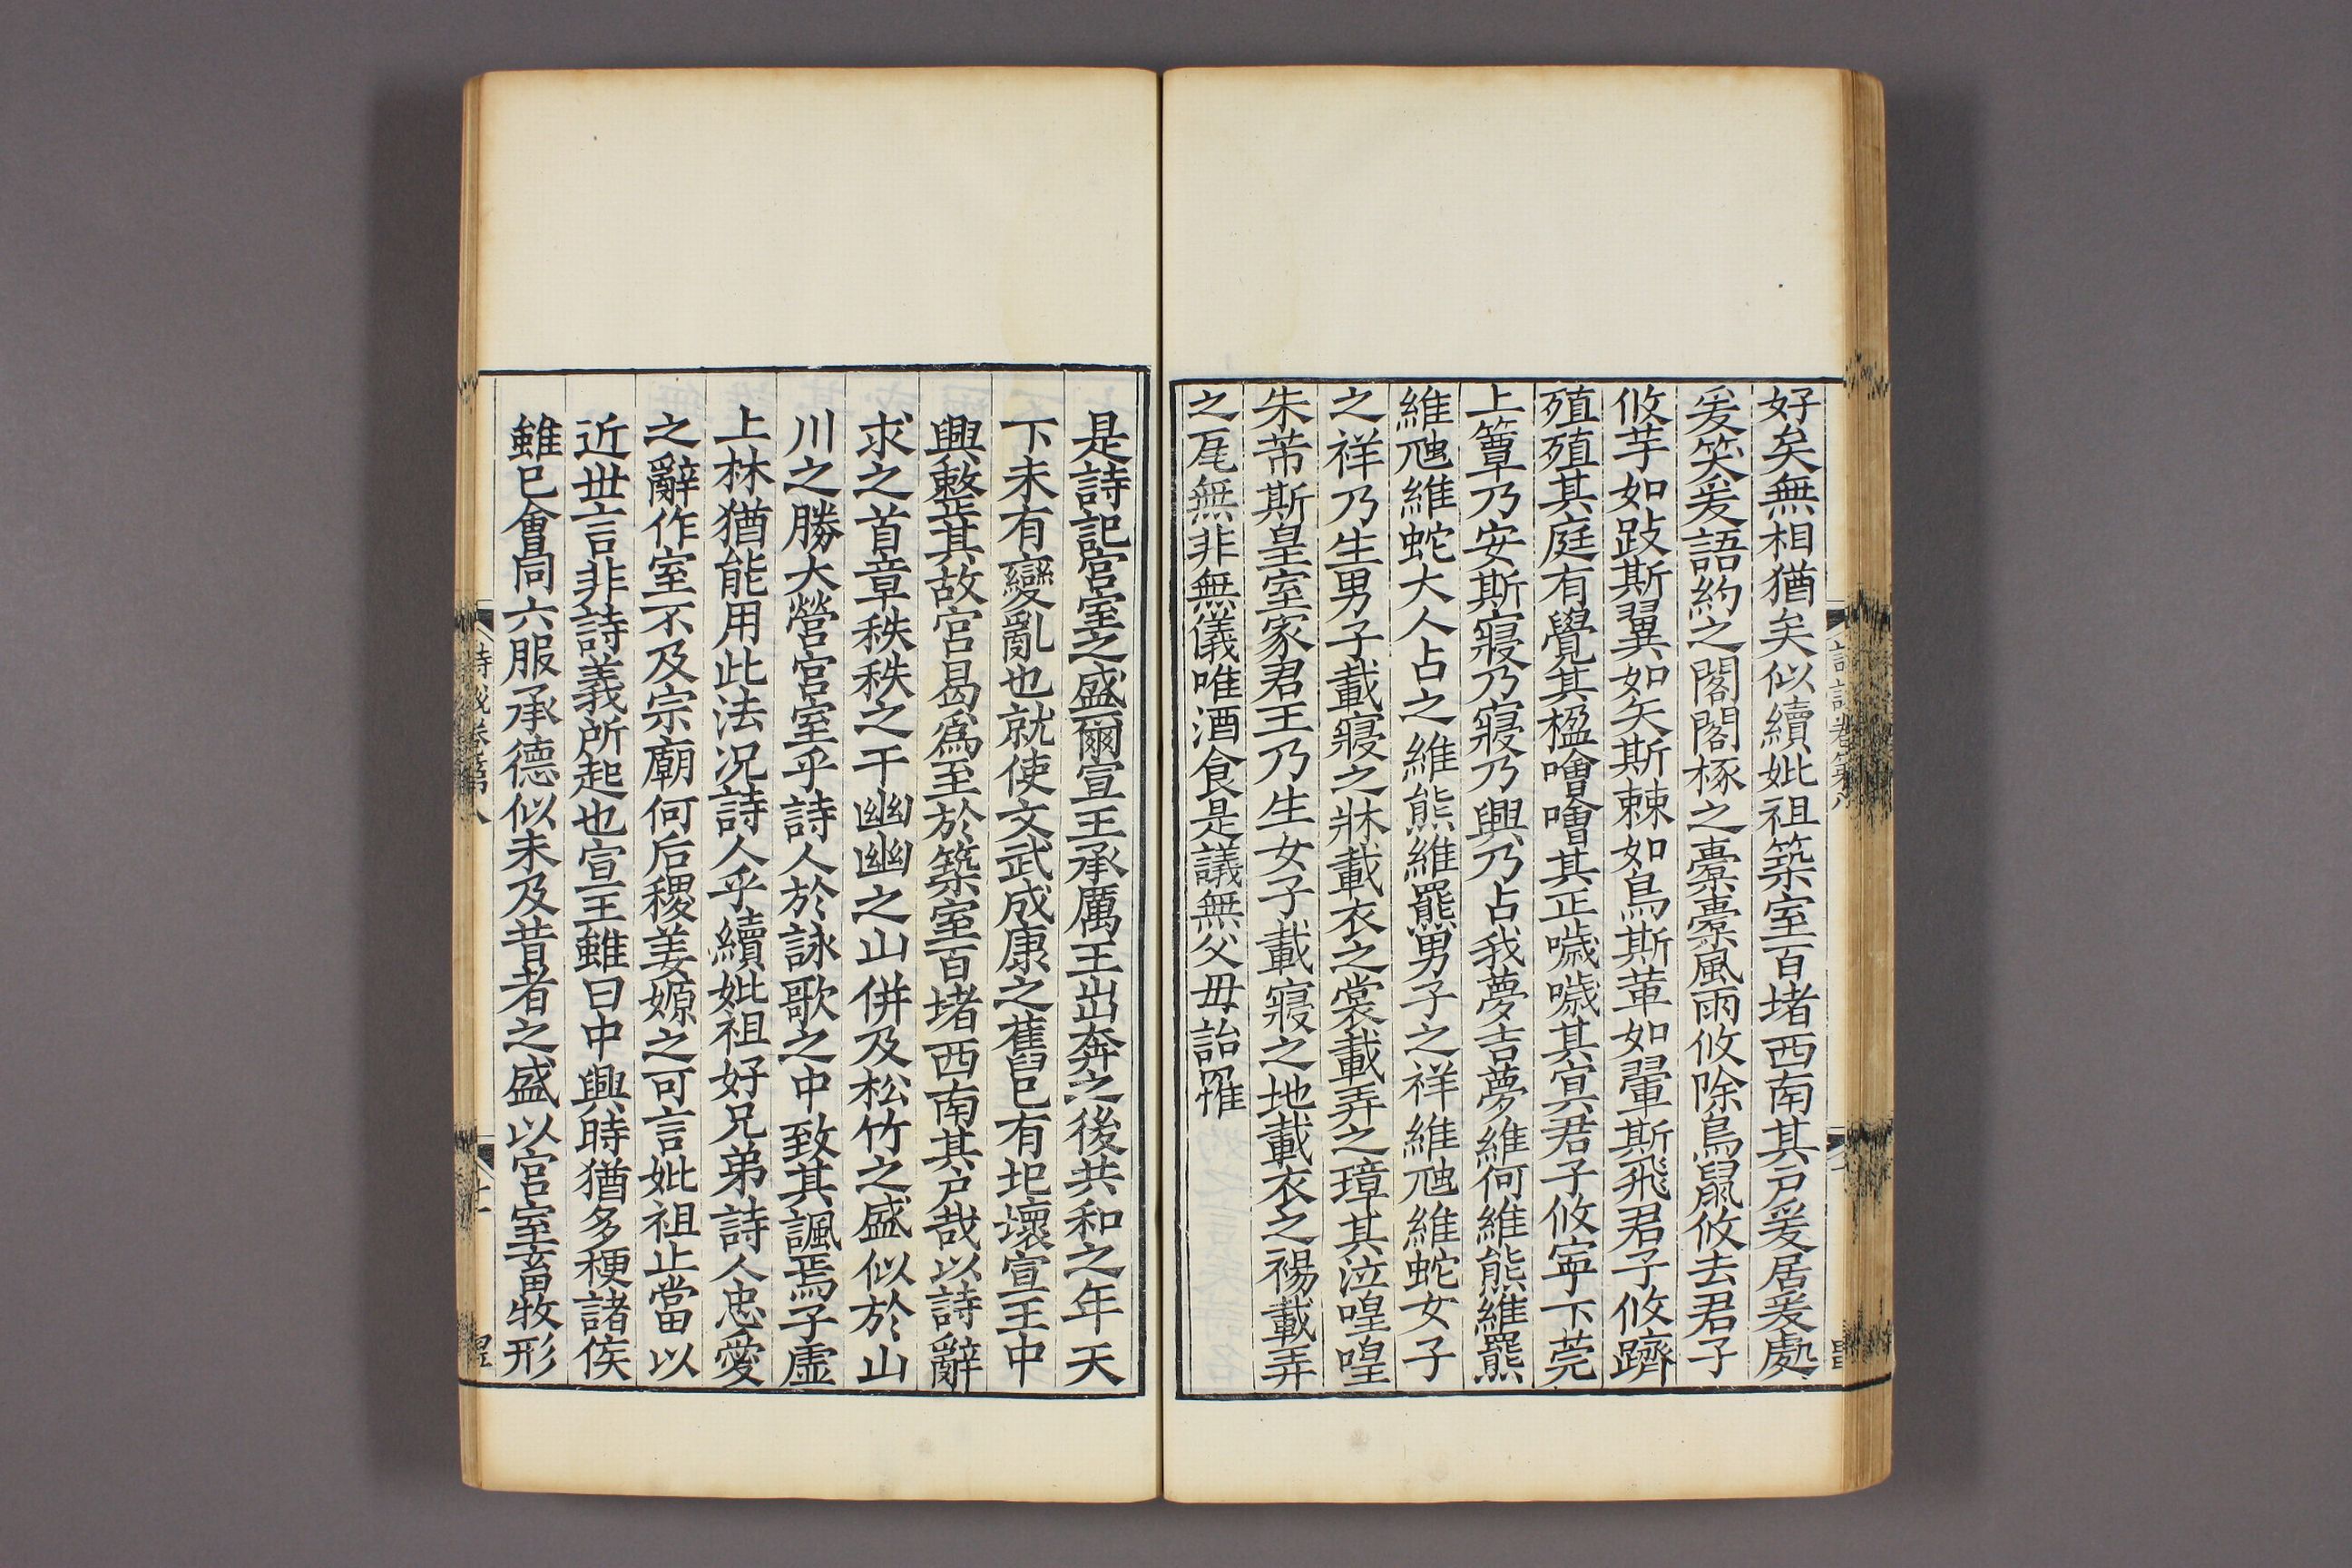 好矣無相猶矣似續妣祖築室百堵西南其戶爰居爰處
爰笑爰語約之閣閣椓之橐橐風雨攸除鳥鼠攸去君子
攸芋如跂斯翼如矢斯棘如鳥斯革如翬斯飛君子攸躋
殖殖其庭有覺其楹噲噲其正噦噦其冥君子攸寧下莞
上簟乃安斯寢乃寢乃興乃占我夢吉夢維何維熊維羆
維虺維蛇大人占之維熊維羆男子之祥維虺維蛇女子
之祥乃生男子載寢之牀載衣之裳載弄之璋其泣喤喤
朱芾斯皇室家君王乃生女子載寢之地載衣之裼載弄
之瓦無非無儀唯酒食是議無父母詒罹
是詩記宮室之盛爾宣王承厲王出奔之後共和之年天
下未有變亂也就使文武成康之舊已有圯壞宣王中
興整其故宮曷爲至於築室百堵西南其戶哉以詩辭
求之首章秩秩之干幽幽之山併及松竹之盛似於山
川之勝大營宮室乎詩人於詠歌之中致其諷焉子虛
上林猶能用此法况詩人乎續妣祖好兄弟詩人忠愛
之辭作室不及宗廟何后稷姜嫄之可言妣祖止當以
近世言非詩義所起也宣王雖曰中興時猶多梗諸侯
雖已會同六服承德似未及昔者之盛以宮室畜牧形
詩 卷第八